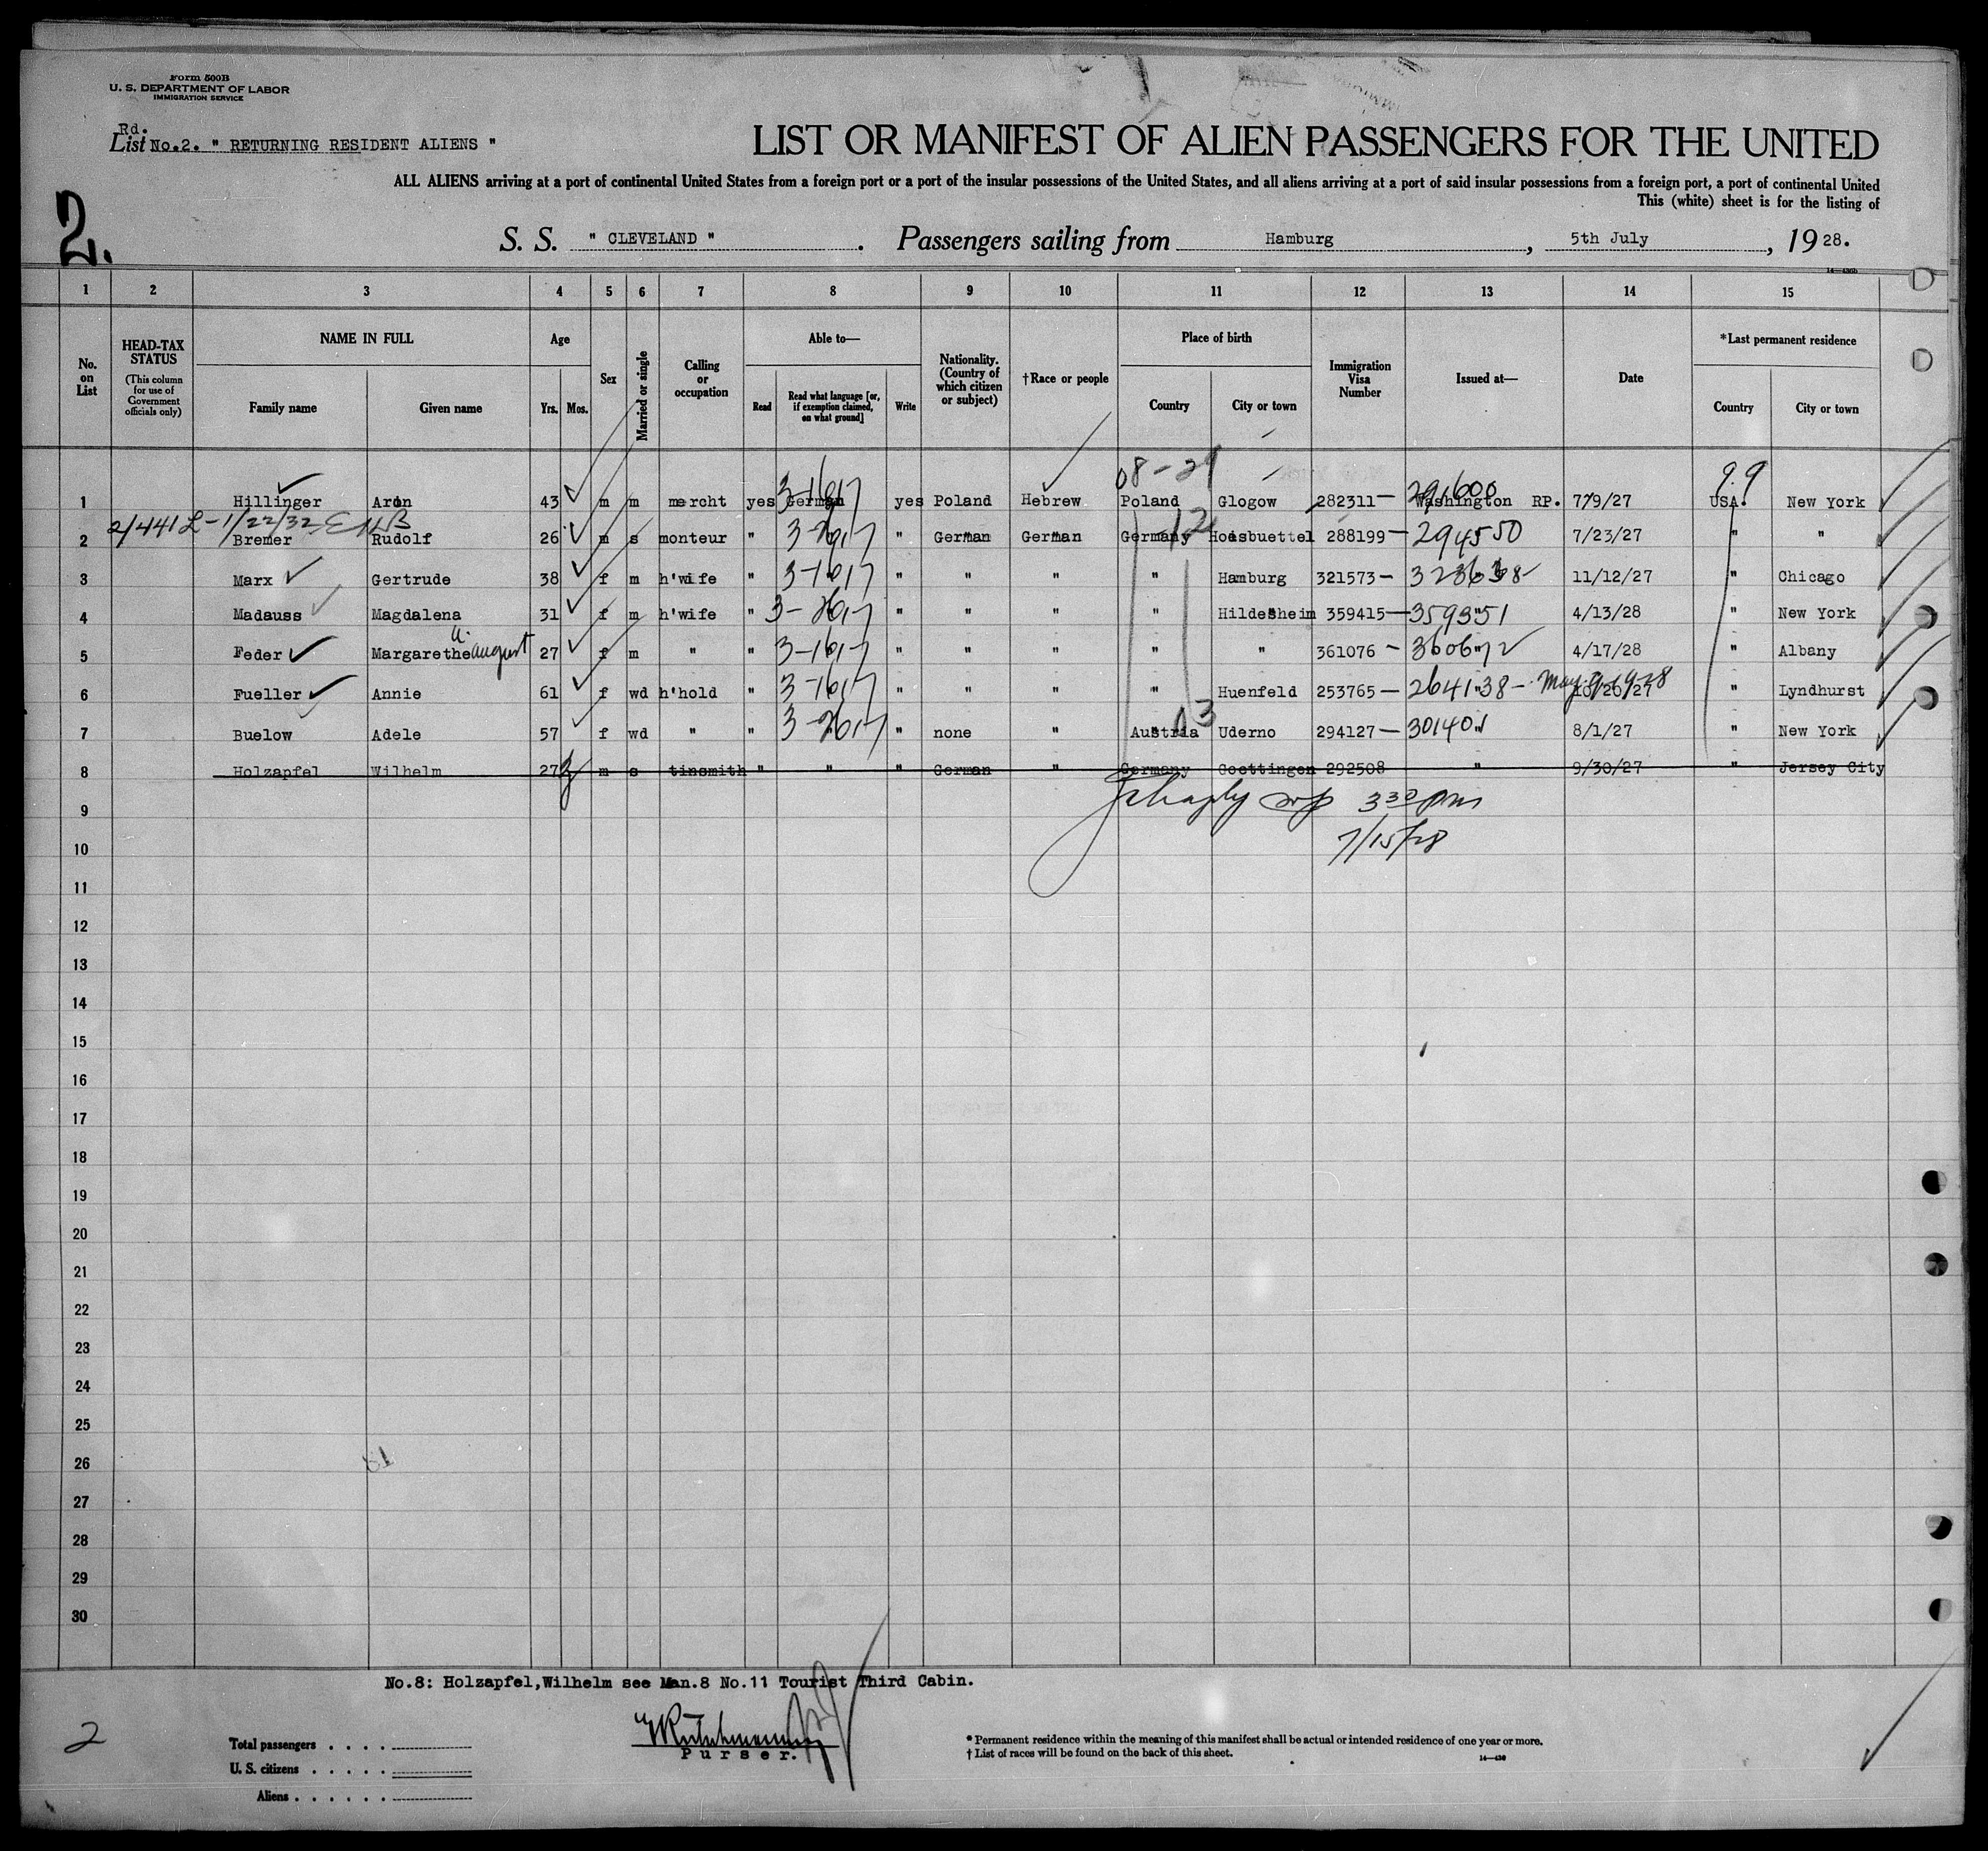 Form 500B
U. S. DEPARTMENT OF LABOR
IMMIGRATION SERVICE
Rd.
List No.2. " RETURNING RESIDENT ALIENS "
LIST OR MANIFEST OF ALIEN PASSENGERS FOR THE UNITED
ALL ALIENS arriving at a port of continental United States from a foreign port or a port of the insular possessions of the United States, and all aliens arriving at a port of said insular possessions from a foreign port, a port of continental United
This (white) sheet is for the listing of
2.
S. S. " CLEVELAND ". Passengers sailing from Hamburg, 5th July, 1928.
14—430b
1 2 3 4 5 6 7 8 9 10 11 12 13 14 15
No. on List
HEAD-TAX STATUS (This column for use of Government officials only)
NAME IN FULL Family name Given name
Age Yrs. Mos.
Sex
Married or single
Calling or occupation
Able to— Read Read what language [or, if exemption claimed, on what ground] Write
Nationality. (Country of which citizen or subject)
†Race or people
Place of birth Country City or town
Immigration Visa Number
Issued at—
Date
*Last permanent residence Country City or town
08-29 99
1 Hillinger Aron 43 m m mercht yes German 3-1617 yes Poland Hebrew Poland Glogow 282311— Washington RP. 291600 7/9/27 USA. New York
2/441 L-1/22/32
2 Bremer Rudolf 26 m s monteur " " 3-2617 " German German Germany 12 Hoisbuettel 288199— 294550 7/23/27 " "
3 Marx Gertrude 38 f m h'wife " " 3-1617 " " " " Hamburg 321573— 323638 11/12/27 " Chicago
4 Madauss Magdalena 31 f m h'wife " " 3-2617 " " " " Hildesheim 359415— 359351 4/13/28 " New York
5 Feder Margarethe August 27 f m " " " 3-1617 " " " " " 361076— 360672 4/17/28 " Albany
6 Fueller Annie 61 f wd h'hold " " 3-1617 " " " " Huenfeld 253765— 264138— May 9-1928 10/20/27 " Lyndhurst
7 Buelow Adele 57 f wd " " " 3-2617 " none " Austria 03 Uderno 294127— 301401 8/1/27 " New York
8 Holzapfel Wilhelm 27 m s tinsmith " " " German " Germany Goettingen 292508 " 9/30/27 " Jersey City
9 3 30 pm
10 7/15/28
11
12
13
14
15
16
17
18
19
20
21
22
23
24
25
26
27
28
29
30
No.8: Holzapfel,Wilhelm see Man.8 No.11 Tourist Third Cabin.
2
Purser.
Total passengers . . . .
U. S. citizens . . . . .
Aliens . . . . . .
* Permanent residence within the meaning of this manifest shall be actual or intended residence of one year or more.
† List of races will be found on the back of this sheet.
14—430